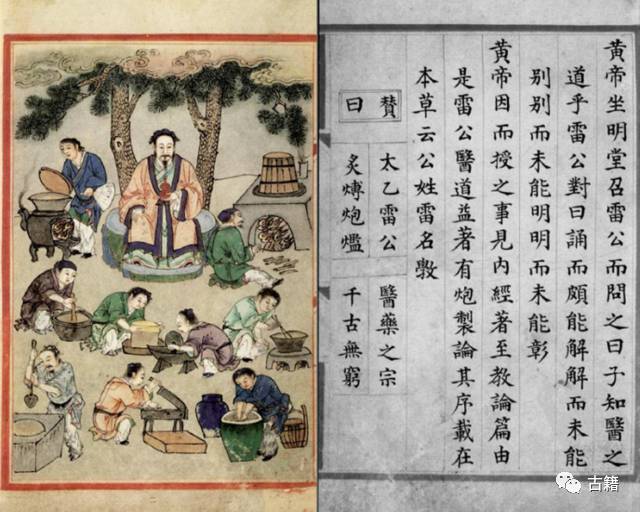 黃帝坐明堂召雷公而問之曰子知醫之
道乎雷公對曰誦而頗能解解而未能
別別而未能明明而未能彰
黃帝因而授之事見內經著至教論篇由
是雷公醫道益著有炮製論其序載在
本草云公姓雷名斅
贊曰
太乙雷公 醫藥之宗
炙煿炮爁 千古無窮
古籍